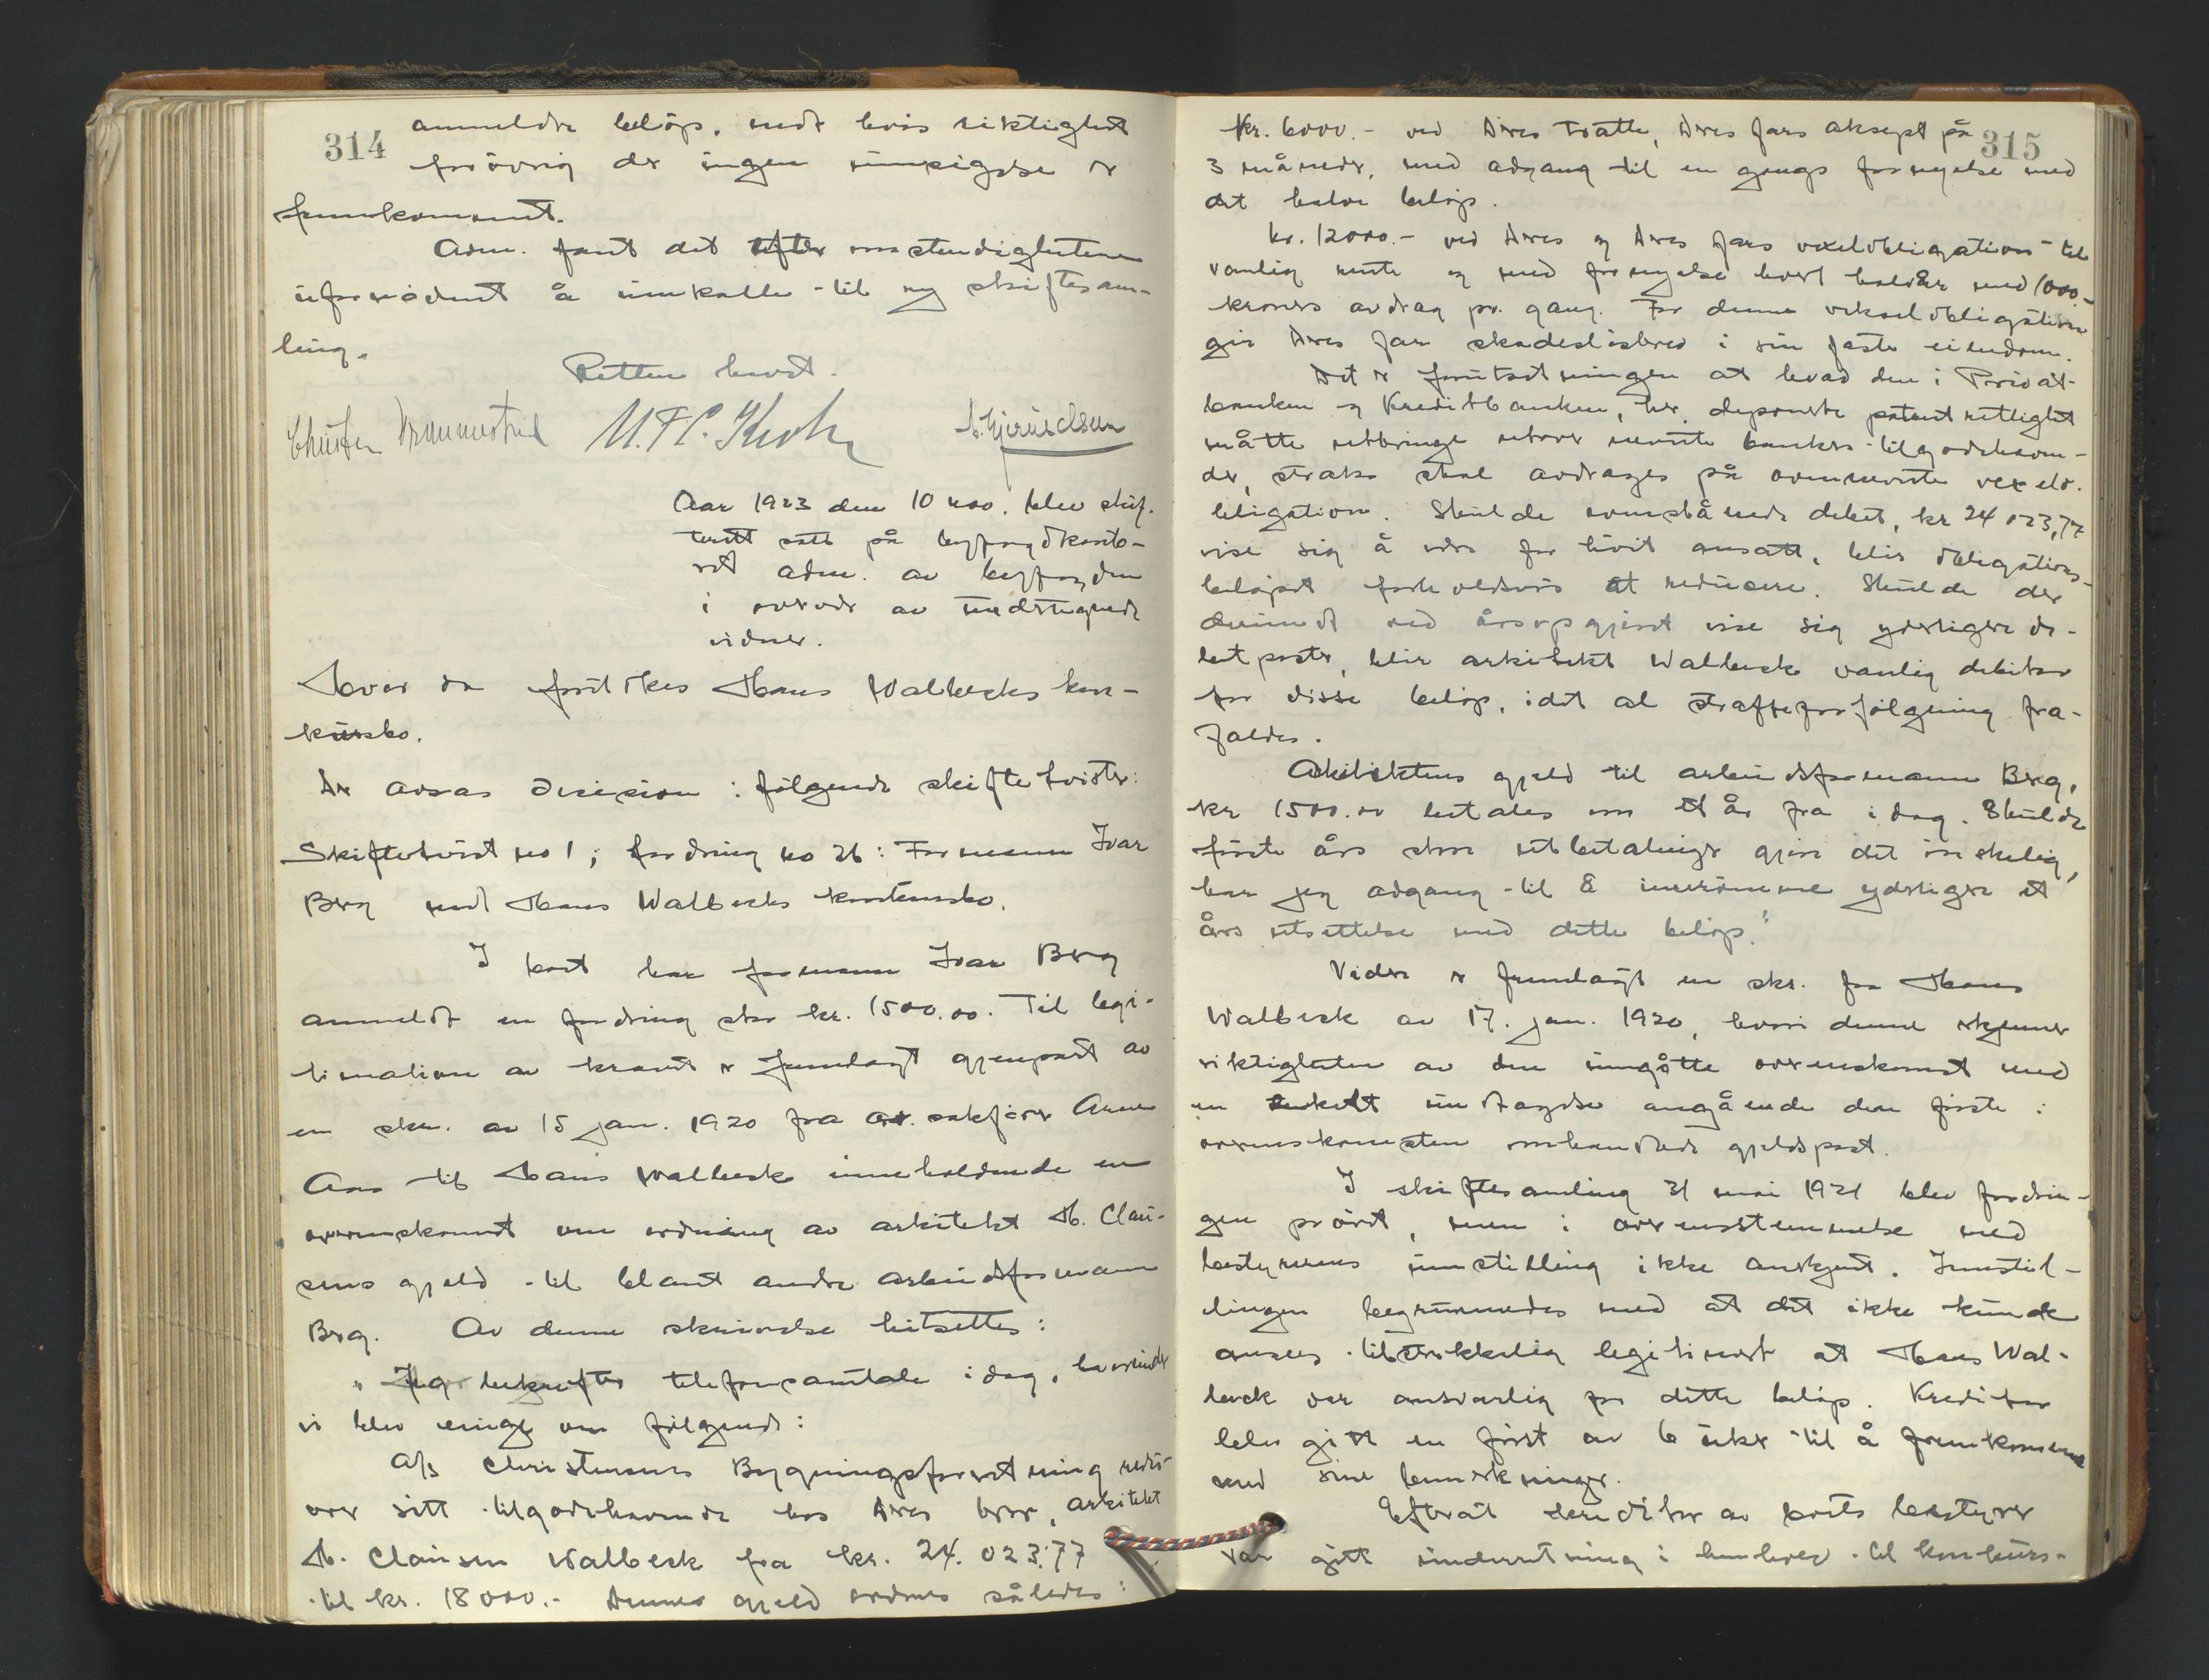 314
anmeldte beløp, mot hvis riktighet
forøvrig der ingen innsigelse er
fremkommet.
Adm. fant det efter omstendighetene
ufornødent å innkalle til ny skiftesam-
ling.
Retten hevet.
Aar 1923 den 10 nov. blev skif-
terett satt på byfogdkonto-
ret adm. av byfogden
i overvær av undertegnede
vidner.
Hvor da foretokes Hans Walbecks kon-
kursbo.
Der avsas decision i følgende skiftetvister:
Skiftetvist no 1, fordring no 26: Formann Ivar
Berg mot Hans Walbecks konkursbo.
I boet har formann Ivar Berg
anmeldt en fordring stor kr. 1500.00. Til legi-
timation av kravet er fremlagt gjenpart av
en skr. av 15 jan. 1920 fra o.r. sakfører Arne
Aas til Hans Walbeck inneholdende en
overenskomst om ordning av arkitekt H. Clau-
sens gjeld til blant andre arbeidsformann
Berg. Av denne skrivelse hitsettes:
"Jeg bekrefter telefonsamtale idag, hvorunder
vi blev enige om følgende:
A/s Christensens Bygningsforretning redu-
cerer sitt tilgodehavende hos Deres bror, arkitekt
H. Clausen Walbeck fra kr. 24.023,77
til kr. 18000.- Denne gjeld ordnes således:
315
Kr. 6000.- ved Deres tratte, Deres fars aksept på
3 måneder, med adgang til en gangs fornyelse med
det halve beløp.
kr. 12000.- ved Deres og Deres fars vexelobligation til
vanlig rente og med fornyelse hvert halvår med 1000.-
kroners avdrag pr. gang. For denne vekselobligation
gir Deres far skadesløsbrev i sin faste eiendom.
Det er forutsetningen at hvad den i Privat-
banken og Kreditbanken, her, deponerte patentrettighet
måtte utbringe utover nevnte bankers tilgodehaven-
der, straks skal avdrages på ovennevnte vexelo-
bligation. Skulde ovenstående debet, kr 24023,77
vise sig å være for høit ansatt, blir obligations-
beløpet forholdsvis at reducere. Skulde der
derimot ved årsopgjøret vise sig yderligere de-
betposter, blir arkitekt Walbeck vanlig debitor
for disse beløp, idet al strafforfølgning fra-
faldes.
Arkitektens gjeld til arbeidsformann Berg,
kr 1500.00 betales om et år fra idag. Skulde
første års store utbetalinger gjøre det ønskelig,
har jeg adgang til å innrømme yderligere et
års utsettelse med dette beløp."
Videre er fremlagt en skr. fra Hans
Walbeck av 17. jan. 1920, hvori denne erkjenner
riktigheten av den inngåtte overenskomst med
en enkelt undtagelse angående den første i
overenskomsten omhandlede gjeldspost.
I skiftesamling 31 mai 1921 blev fordrin-
gen prøvet, men i overensstemmelse med
bestyrerens innstilling ikke anerkjent. Innstil-
lingen begrunnedes med at det ikke kunde
ansees tilstrekkelig legitimert at Hans Wal-
beck var ansvarlig for dette beløp. Kreditor
blev gitt en frist av 6 uker til å fremkomme
med sine bemerkninger.
Efterat kreditor av boets bestyrer
var gitt underretning i henhold til konkurs-